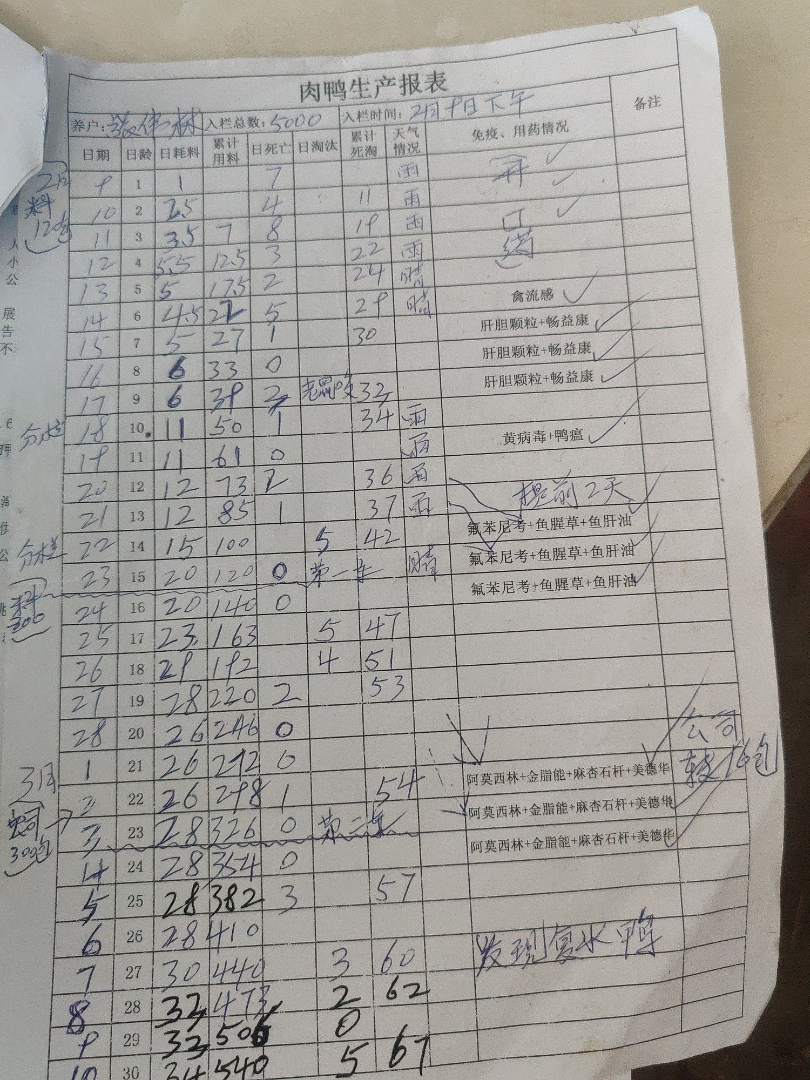 肉鸭生产报表
养户: 张伟林 入栏总数: 5000 入栏时间: 2月9日下午 备注
日期 日龄 日耗料 累计用料 日死亡 日淘汰 累计死淘 天气情况 免疫、用药情况
2月 9 1 1 7 雨 开
料 10 2 2.5 4 11 雨
120包 11 3 3.5 7 8 19 雨 口
12 4 5.5 12.5 3 22 雨
13 5 5 17.5 2 24 晴
14 6 4.5 22 5 29 晴 禽流感
15 7 5 27 1 30 肝胆颗粒+畅益康
16 8 6 33 0 肝胆颗粒+畅益康
17 9 6 39 2 老鼠咬 32 肝胆颗粒+畅益康
分栏 18 10 11 50 1 34 雨
19 11 11 61 0 雨 黄病毒+鸭瘟
20 12 12 73 2 36 雨
21 13 12 85 1 37 雨 提前2天
分栏 22 14 15 100 5 42 氟苯尼考+鱼腥草+鱼肝油
23 15 20 120 0 第一车 晴 氟苯尼考+鱼腥草+鱼肝油
料 24 16 20 140 0 氟苯尼考+鱼腥草+鱼肝油
200 25 17 23 163 5 47
26 18 29 192 4 51
27 19 28 220 2 53
28 20 26 246 0
3月 1 21 26 272 0 公司
2 22 26 298 1 54 阿莫西林+金脂能+麻杏石杆+美德华 转16包
3 23 28 326 0 第二车 阿莫西林+金脂能+麻杏石杆+美德华
300包 4 24 28 354 0 阿莫西林+金脂能+麻杏石杆+美德华
5 25 28 382 3 57
6 26 28 410
7 27 30 440 3 60 发现复水鸭
8 28 32 473 2 62
9 29 32 506 0
10 30 34 540 5 67